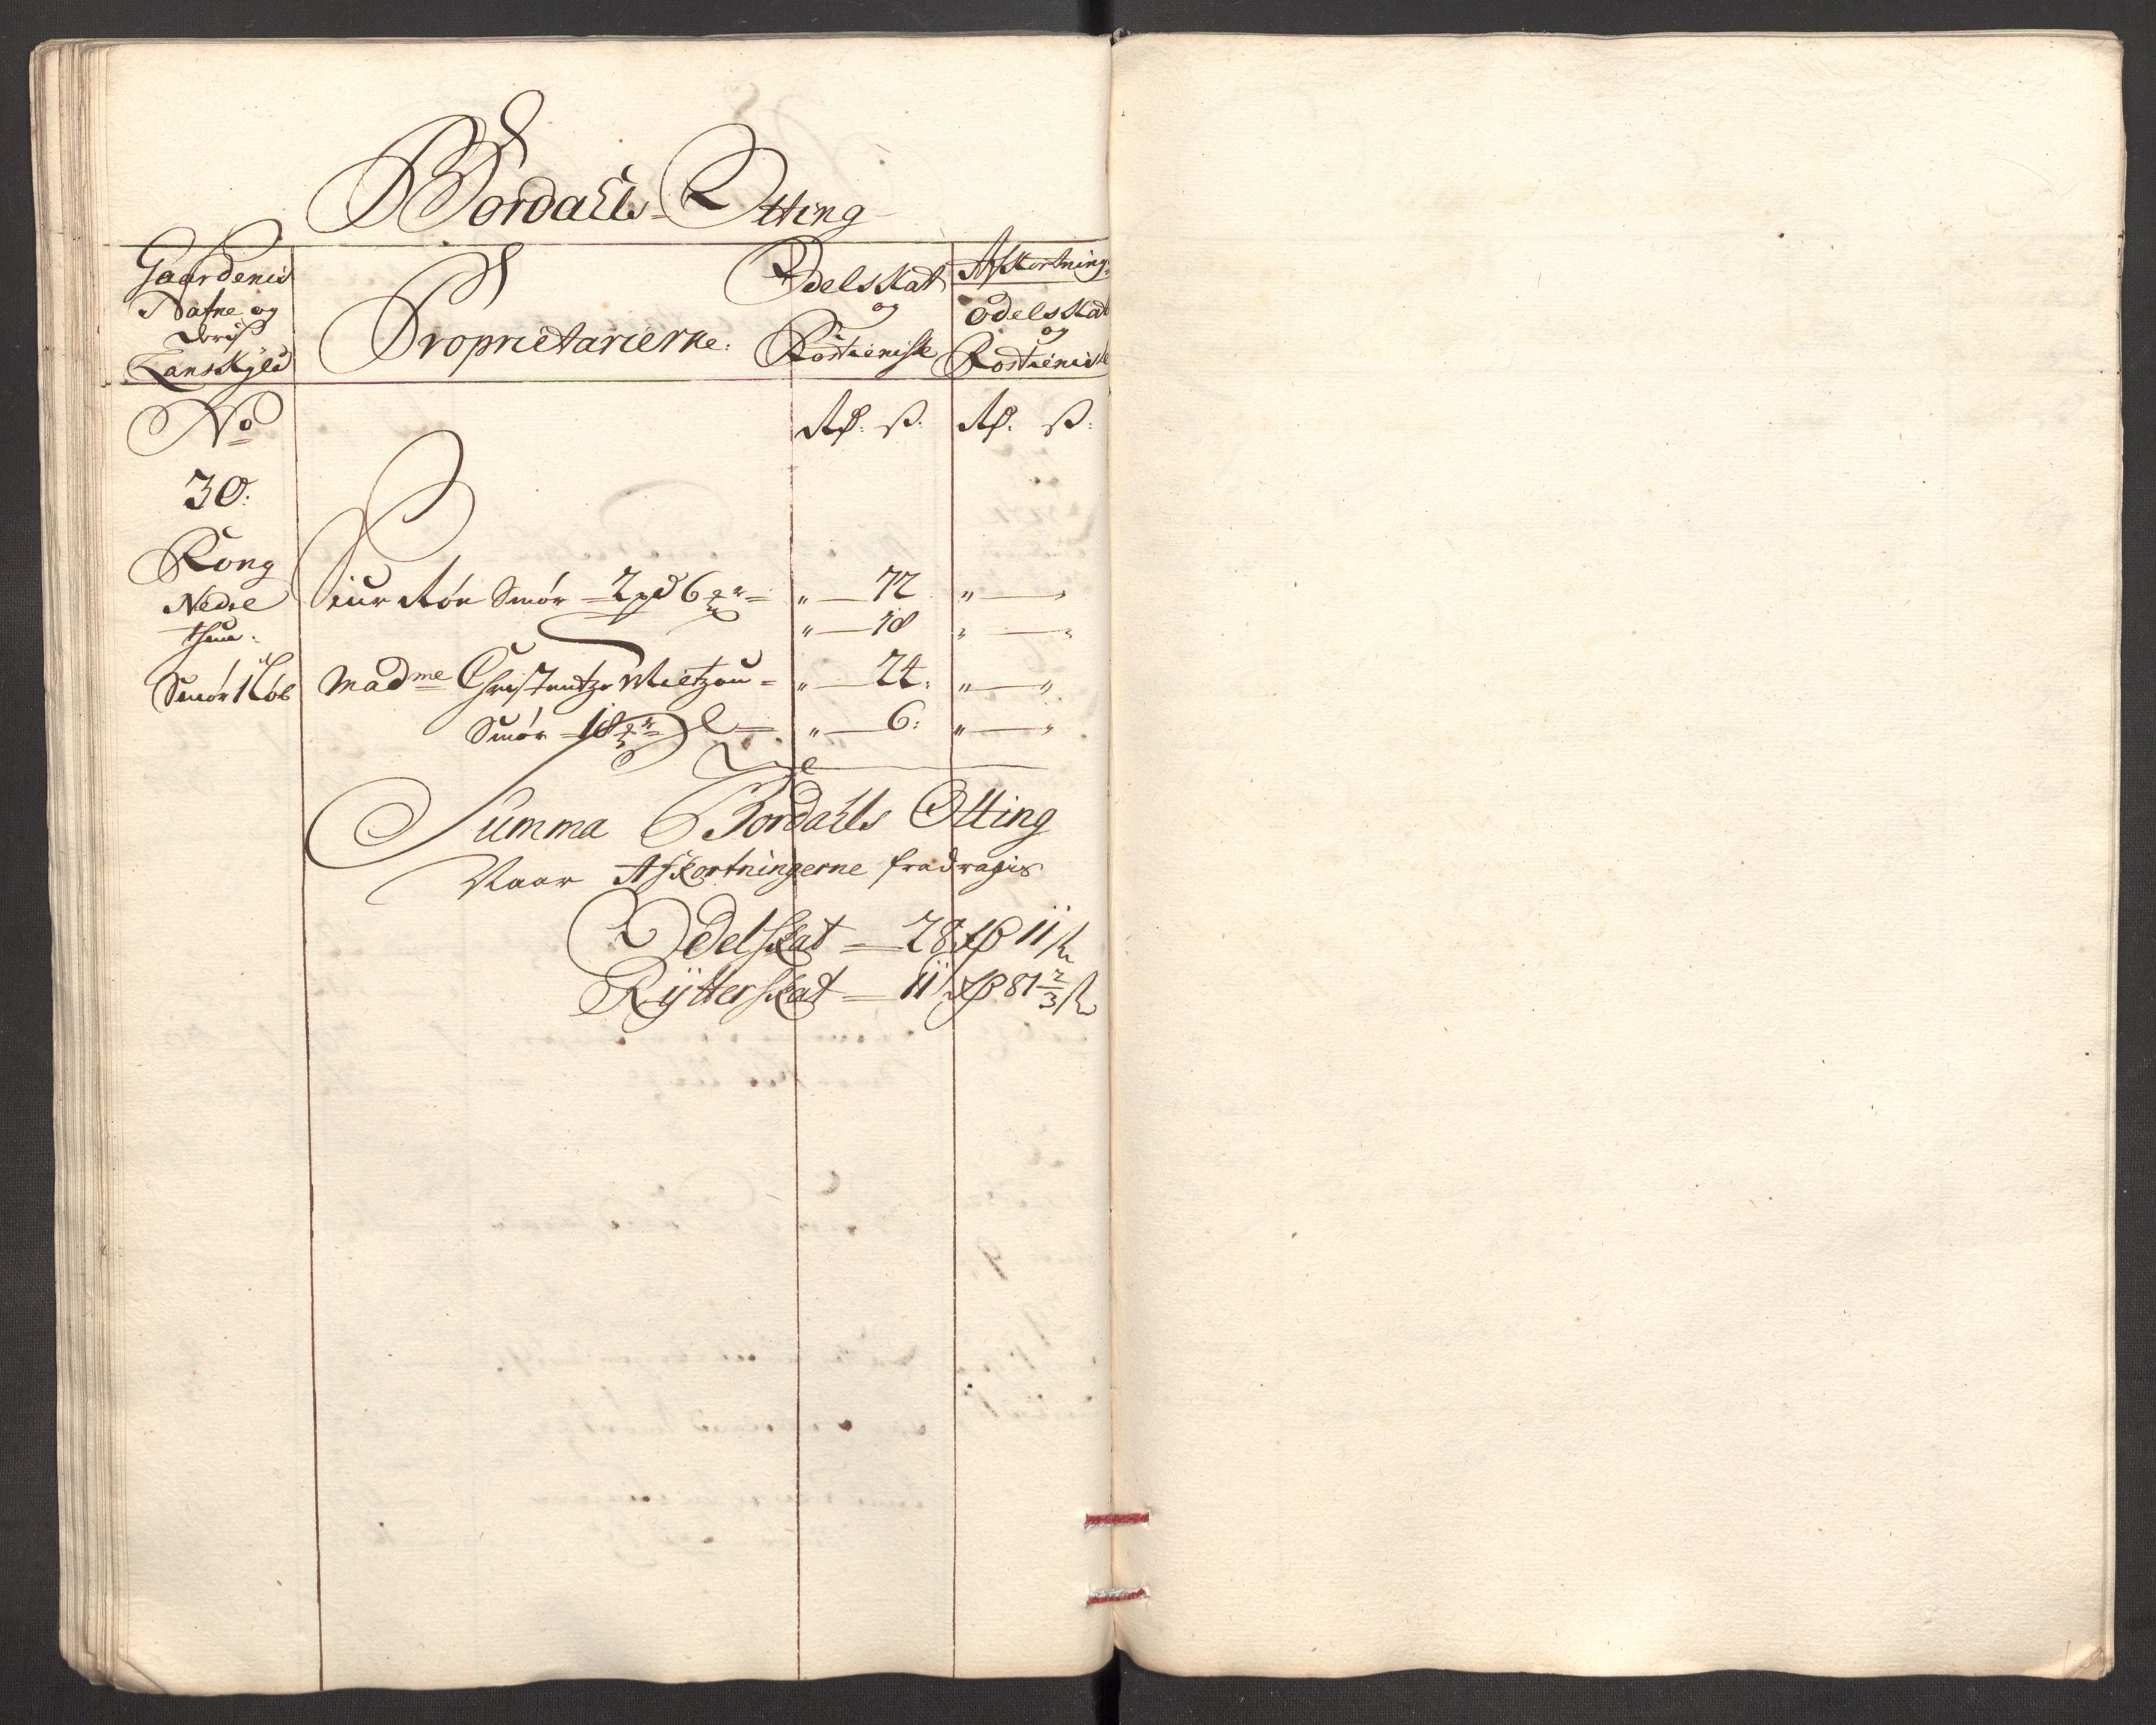 Bordahls Otting
Gaardenis
Nafne og
deris
Landskyld
Proprietarierne.
Odelskat
og
Rostieniste
Afkortning
Odelskat
og
Rostieniste
No
Rd. s. Rd. s.
30.
Rong
Nedre
thun.
Smør 1 Løb
Siur Røn Smør = 2 pd 6 mr = " — 72 " — "
" — 18 " — "
Madme Christentze Mietzou = " — 24: " — "
Smør = 18 mr = " — 6: " — "
Summa Bordahls Otting
Naar Afkortningerne fradragis
Odelskat — 28 Rd 11 s
Rÿtterskat — 11 Rd 81 2/3 s